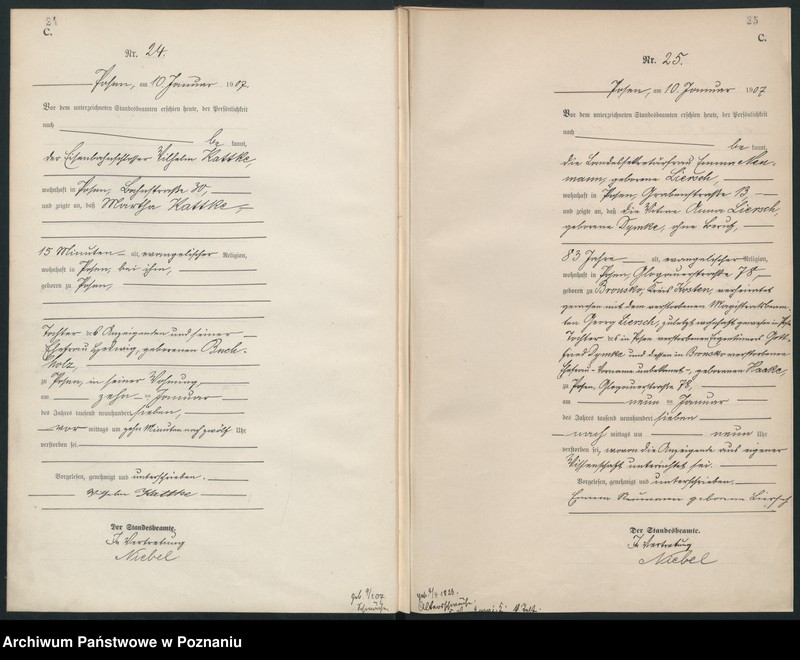 24
C.
Nr. 24.
Posen, am 10. Januar 1907
Vor dem unterzeichneten Standesbeamten erschien heute, der Persönlichkeit
nach
be kannt,
der Eisenbahnschlosser Wilhelm Kattke
wohnhaft in Posen, Bahnstraße 30,
und zeigte an, daß Martha Kattke,
15 Minuten alt, evangelischer Religion,
wohnhaft in Posen, bei ihm,
geboren zu Posen,
Tochter des Anzeigenden und seiner
Ehefrau Hedwig, geborenen Buch-
holz,
zu Posen, in seiner Wohnung,
am zehn ten Januar
des Jahres tausend neunhundert sieben,
vor mittags um zehn Minuten nach zwölf Uhr
verstorben sei.
Vorgelesen, genehmigt und unterschrieben.
Wilhelm Kattke
Der Standesbeamte.
In Vertretung
Niebel
geb. 9/1 07
Schwäche
25
C.
Nr. 25.
Posen, am 10. Januar 1907
Vor dem unterzeichneten Standesbeamten erschien heute, der Persönlichkeit
nach
be kannt,
die Landessekretärfrau Emma Neu-
mann, geborene Liersch,
wohnhaft in Posen, Grabenstraße 13,
und zeigte an, daß die Witwe Anna Liersch,
geborene Dymke, ohne Beruf,
83 Jahre alt, evangelischer Religion,
wohnhaft in Posen, Glogauerstraße 78,
geboren zu Bronsko, Kreis Kosten, verheiratet
gewesen mit dem verstorbenen Magistratsbeam-
ten Georg Liersch, zuletzt wohnhaft gewesen in Posen
Tochter des in Posen verstorbenen Eigentümers Gott-
fried Dymke und dessen in Bronsko verstorbenen
Ehefrau - Vorname unbekannt -, geborenen Haake,
zu Posen, Glogauerstraße 78,
am neun ten Januar
des Jahres tausend neunhundert sieben
nach mittags um neun Uhr
verstorben sei, wovon die Anzeigende aus eigener
Wissenschaft unterrichtet sei.
Vorgelesen, genehmigt und unterschrieben.
Emma Neumann geborene Liersch
Der Standesbeamte.
In Vertretung
Niebel
Altersschwäche.
Archiwum Państwowe w Poznaniu